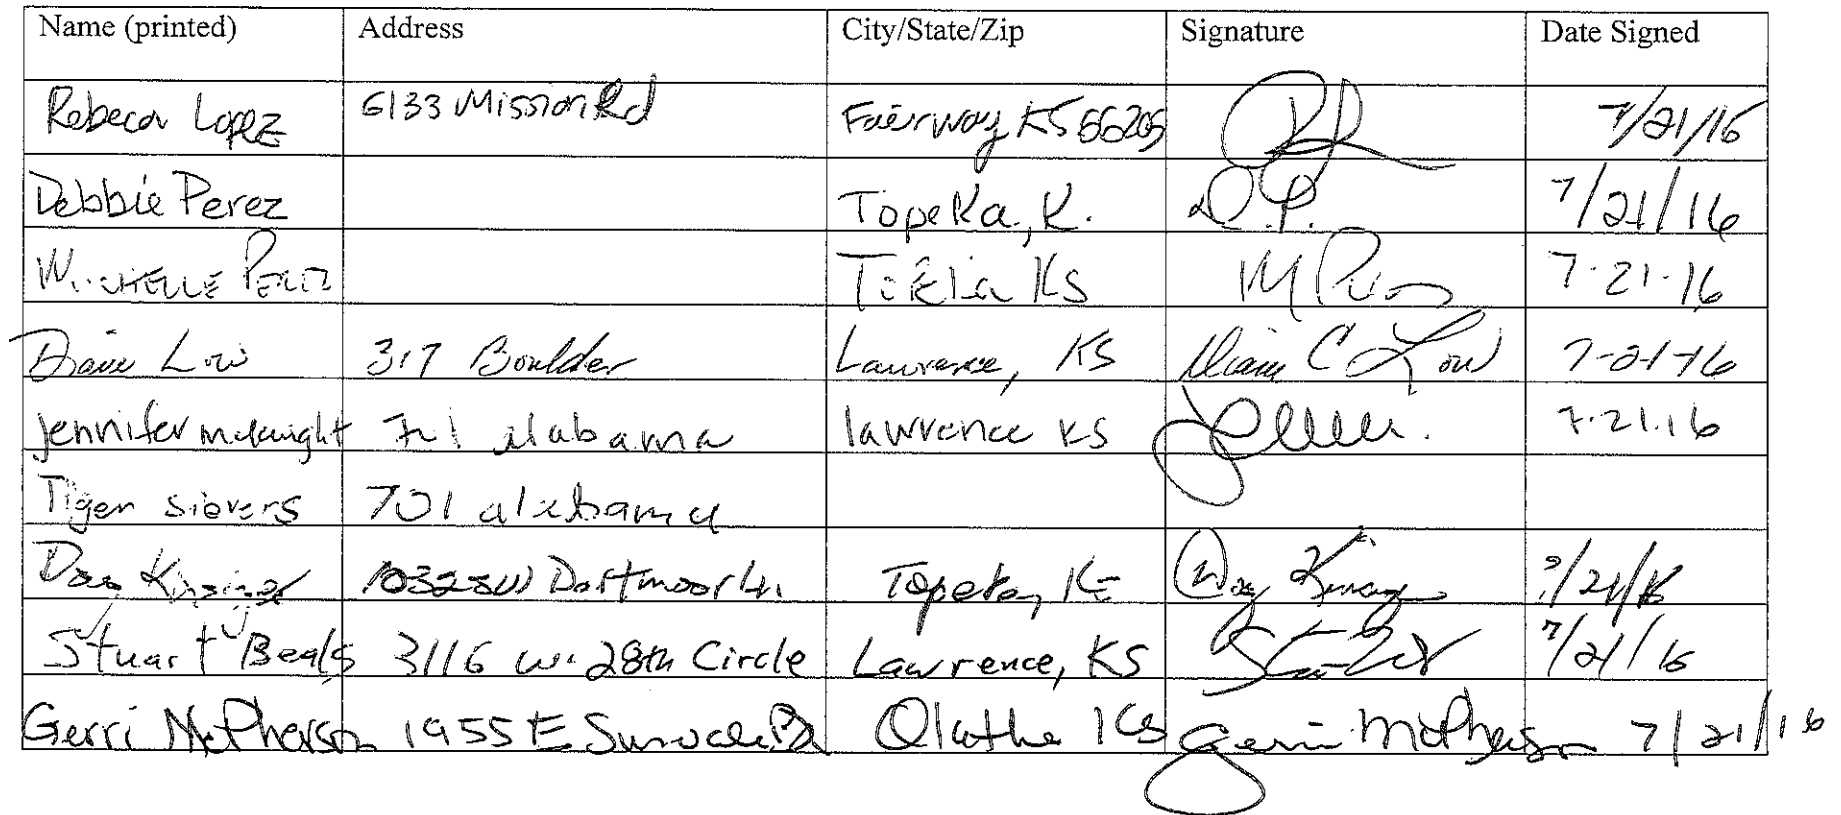 Name (printed) Address City/State/Zip Signature Date Signed
Rebeca Lopez 6133 Mission Rd Fairway KS 66205 7/21/16
Debbie Perez Topeka, K. D.P. 7/21/16
MICHELLE PEREZ KS M 7-21-16
Low 317 Boulder Lawrence, KS C Low 7-21-16
jennifer mcknight alabama lawrence KS 7.21.16
Tiger sievers 701 alabama
Topeka, 7/21/16
Stuart Beals 3116 W. 28th Circle Lawrence, KS 7/21/16
Gerri McPherson 1955 E Olathe KS Gerri McPherson 7/21/16